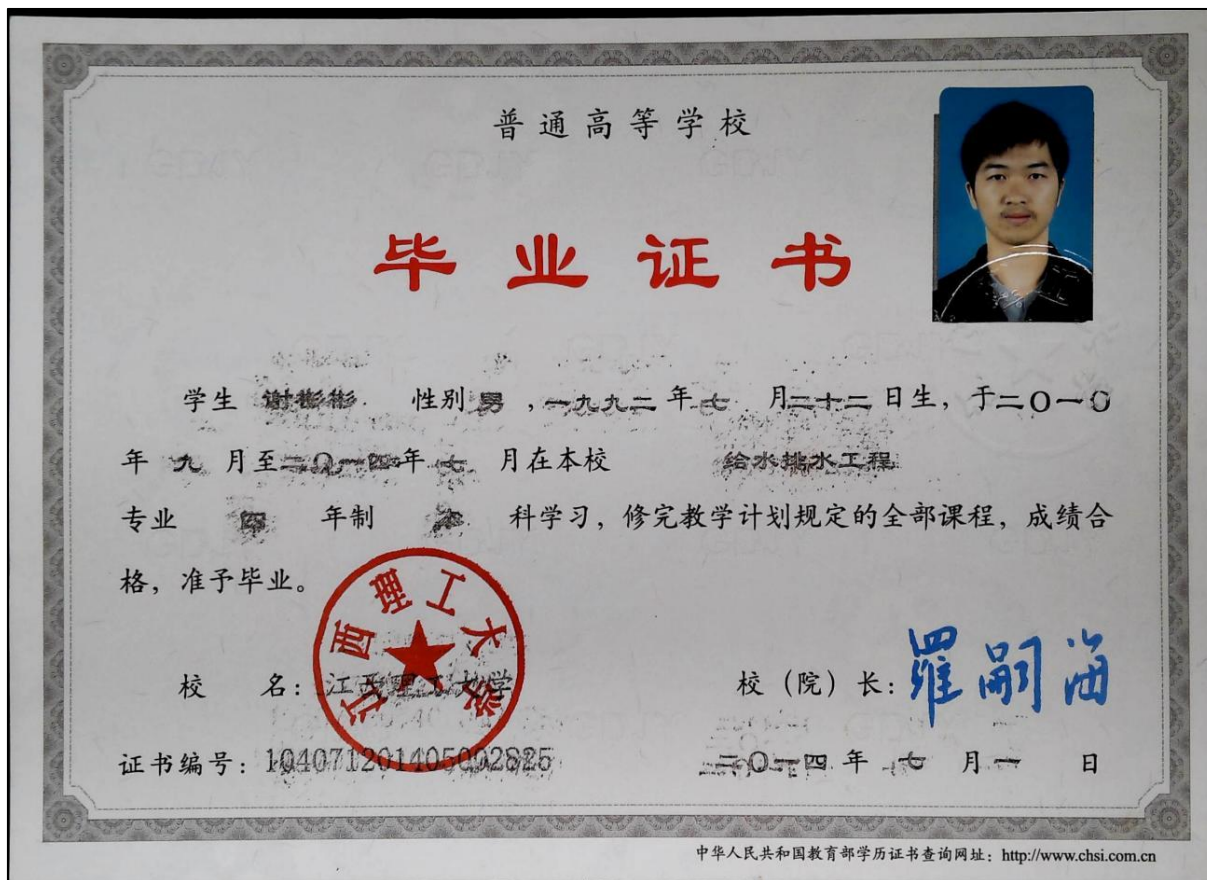 普通高等学校
毕业证书
学生 谢彬彬 性别 男 ,一九九二 年 七 月二十二 日生，于二〇一〇
年 九 月至二〇一四年 七 月在本校 给水排水工程
专业 四 年制 本 科学习，修完教学计划规定的全部课程，成绩合
格，准予毕业。
江西理工大学
校 名：江西理工大学 校（院）长：罗嗣海
证书编号：104071201405002825 二〇一四 年 七 月 一 日
中华人民共和国教育部学历证书查询网址：http://www.chsi.com.cn